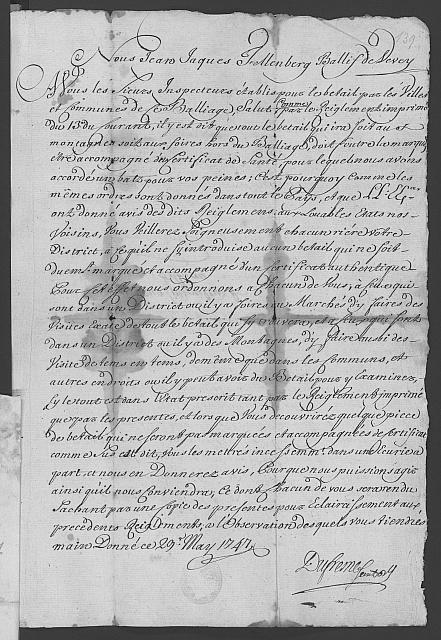 139
Nous Jean Jaques Ballif de Vevey
A Vous les Sieurs, Inspecteurs établis pour le bétail par les Villes
et communes de ce Balliage, Salut. Comme par le Reiglement imprimé
du 13e du Courant, il y est dit que tout le bétail qui ira soit aux
montagnes soit aux foires hors du Balliage, doit outre la marque
être accompagné d'un certificat de Santé, pour lequel nous avons
accordé un batz pour vos peines; C'est pourquoy comme les
mêmes ordres sont donnés dans tout le Pays, et que LL.
ont donné avis des dits Reiglemens aux Louables Etats nos
Voisins, Vous Veillerez Soigneusement chacun rière Votre
District, à ce qu'il ne s'y introduise aucun betail qui ne soit
duement marqué et accompagné d'un certificat authentique
Pour cet effet nous ordonnons à Chacun de Vous, à Celuy qui
sont dans un District où il y a foires ou Marchés d'y faire des
Visites Exactes de tout le betail qui s'y trouvera, et à ceux qui sont
dans un District où il y a des Montagnes, d'y faire aussi des
Visites de tems en tems, de même que dans les Communs, et
autres endroits où il y peut avoir du Betail pour y Examiner,
s'y le tout est dans l'état prescrit tant par le Reiglement imprimé
que par les presentes, et lors que Vous decouvrirez quelque piece
de betail qui ne seront pas marquées et accompagnées de certificat
comme Sus est dit, Vous les mettrés incessamment dans une Ecurie à
part, et nous en Donnerez avis, Pour que nous puissions agir
ainsi qu'il nous Conviendra, Ce dont chacun de Vous sera rendu
Sachant par une Copie des presentes pour Eclaircissement aux
précedents Reiglements, à l'Observation desquels vous tiendrés
main Donné ce 29e May 1747